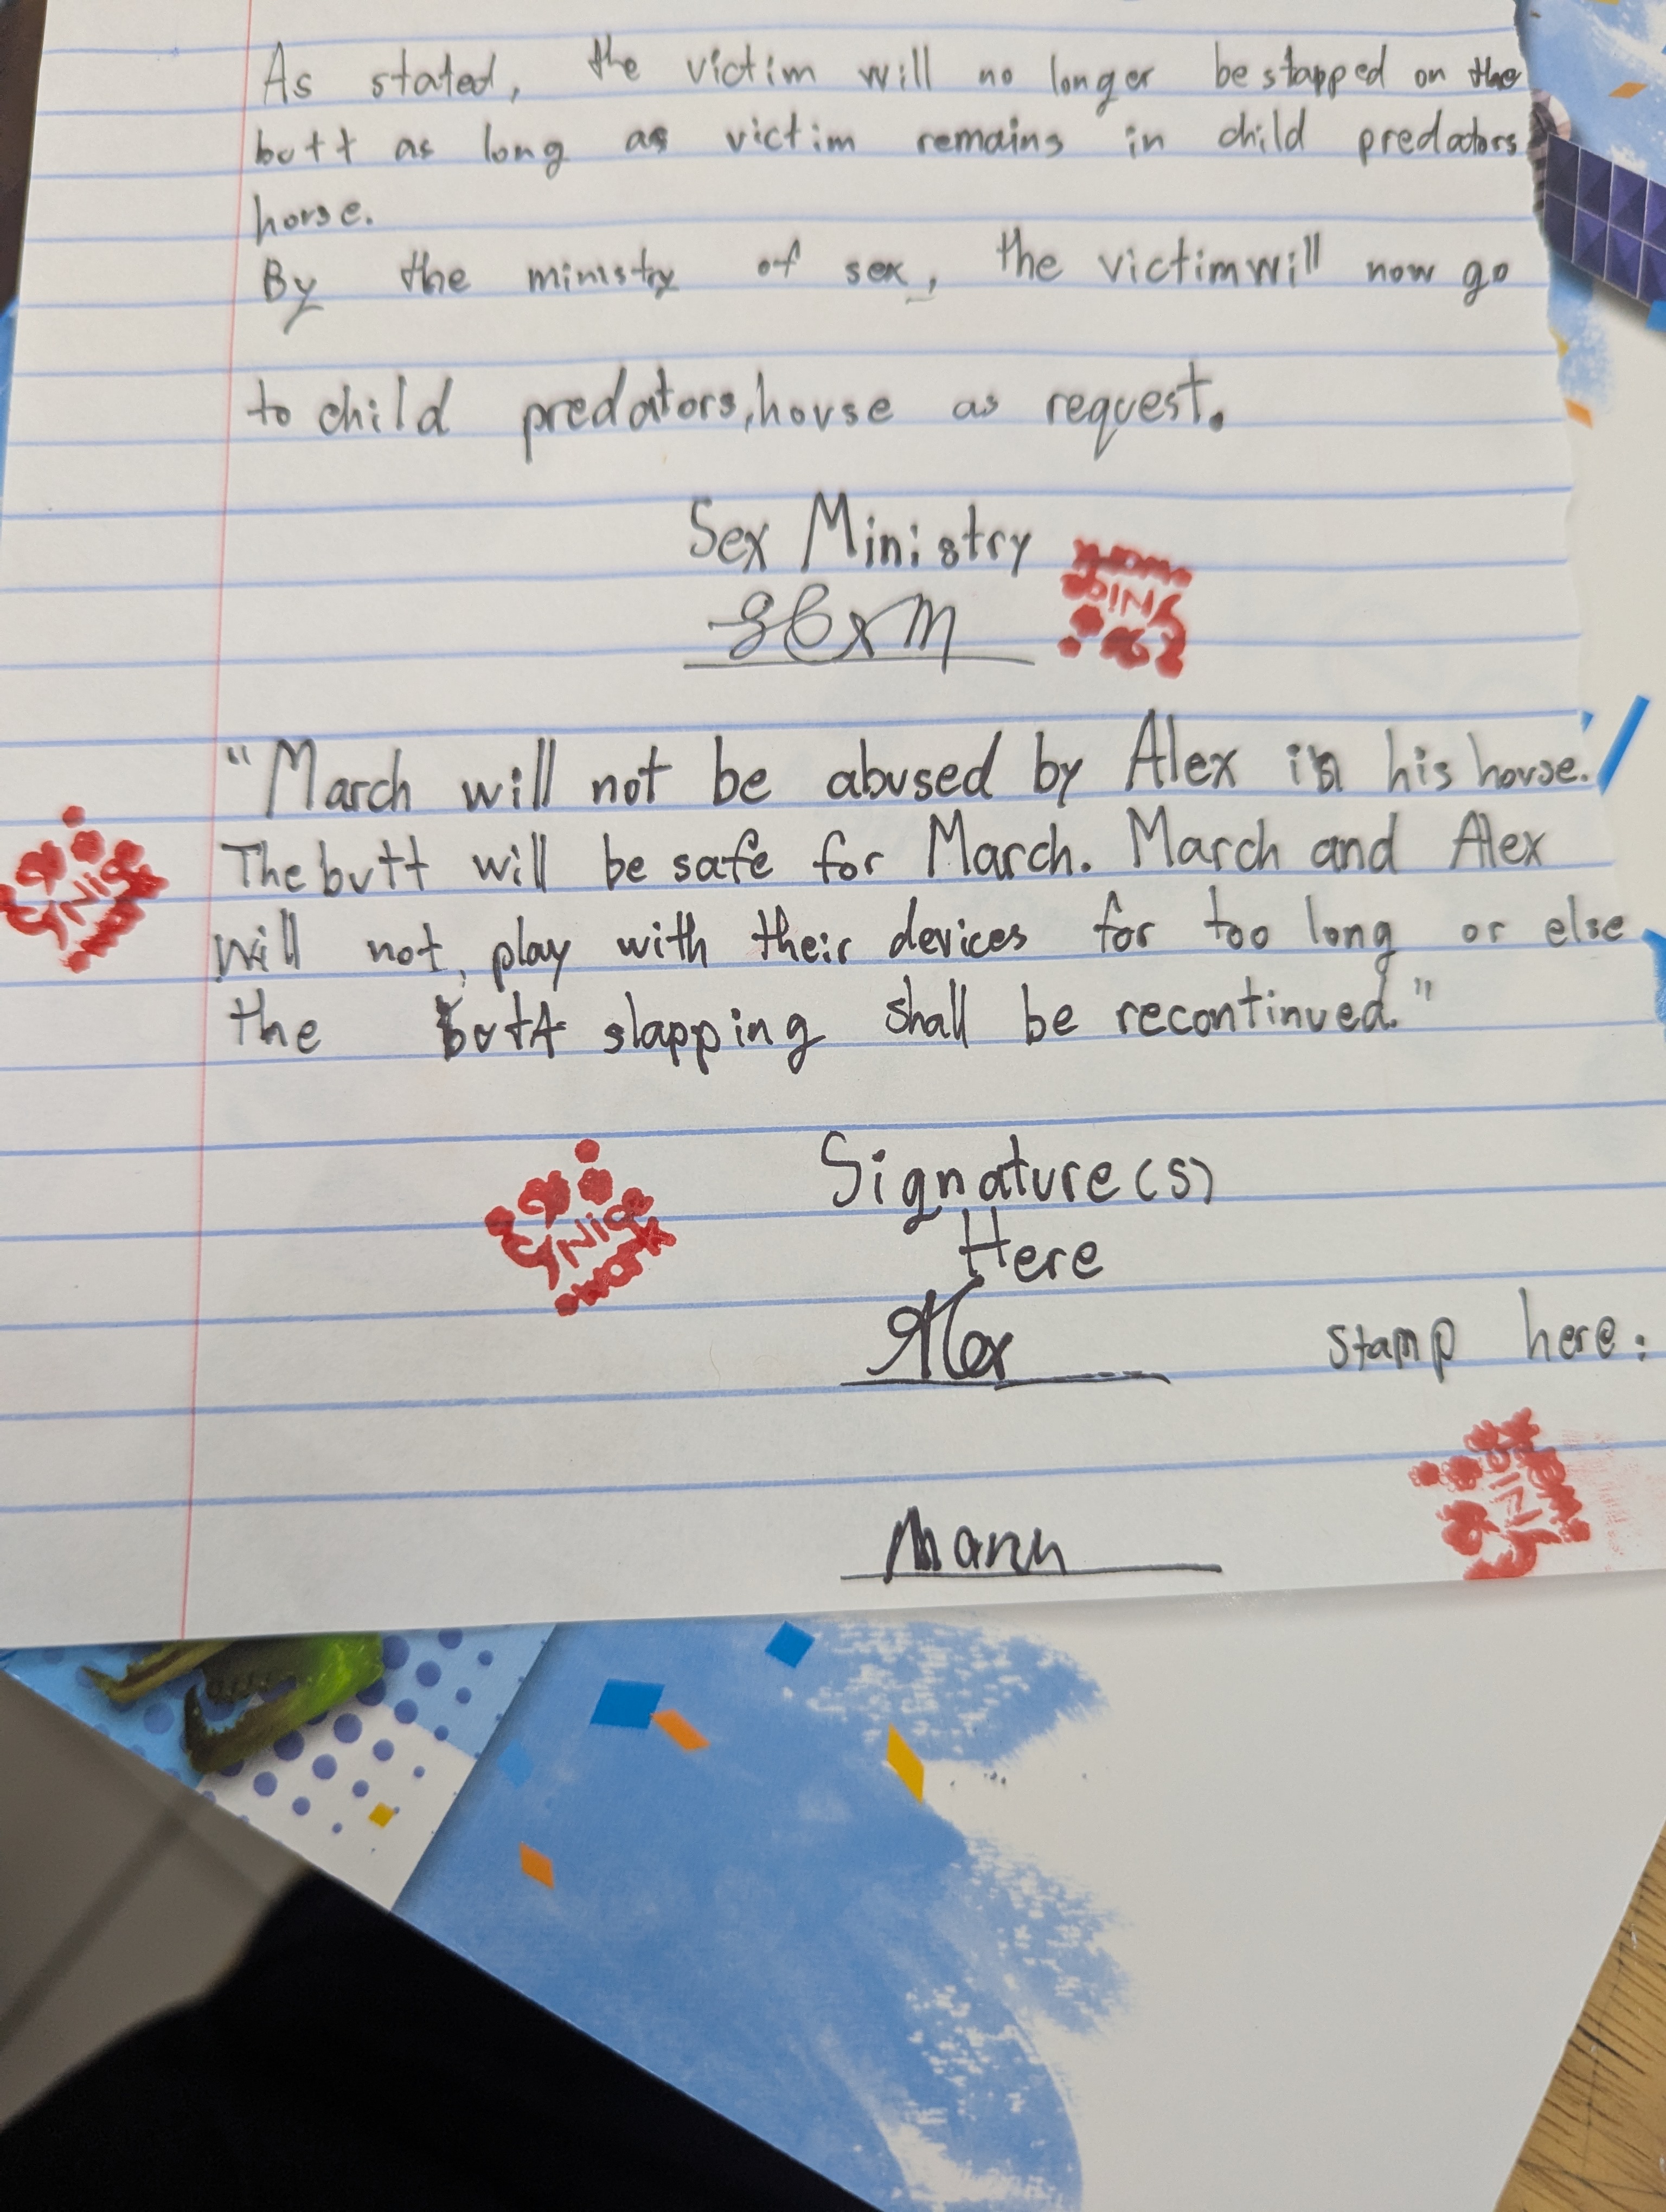 As stated, the victim will no longer be stapped on the
butt as long as victim remains in child predators
horse.
By the ministry of sex, the victim will now go
to child predators, house as request.
Sex Ministry
SExM
"March will not be abused by Alex in his house.
The butt will be safe for March. March and Alex
will not, play with their devices for too long or else
the butt slapping shall be recontinued."
Signature(s)
Here
Alex
stamp here:
March